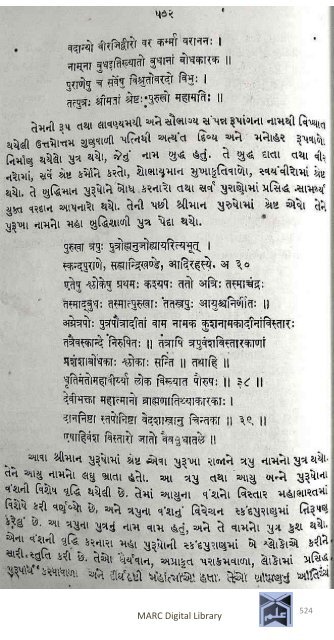 ५૭૨
वदान्यो वीरनिद्वीरो वर कर्म्मा वराननः ।
नाम्ना बुधइतिख्यातो बुधानां बोधकारक ॥
पुराणेषु च सर्वेषु विश्रुतोवरदो विभुः ।
तत्पुत्रः श्रीमजां श्रेष्टः पुरुखो महामतिः ॥
તેમની રૂપ તથા લાવણ્યમયી અને સૌભાગ્ય સંપન્ન રૂપાંગના નામથી વિખ્યાત
થયેલી ઉત્તમોત્તમ ગુણવાળી પત્નિથી અત્યંત દિવ્ય અને મનોહર રૂપવાળો
નિર્માણુ થયેલો પુત્ર થયો, જેનું નામ બુદ્ધ હતું. તે બુદ્ધ દાતા તથા વીર
નરોમાં, સર્વ શ્રેષ્ટ કર્મોને કરતો, શોભાયમાન મુખાકૃતિવાળો, સ્વયંવીરોમાં શ્રેષ્ટ
થયો. તે બુદ્ધિમાન પુરૂષોને બોધ કરનારો તથા સર્વ પુરાણોમાં પ્રસિદ્ધ સામર્થ્ય
યુક્ત વરદાન આપનારો થયો. તેની પછી શ્રીમાન પુરુષોમાં શ્રેષ્ટ એવો તેને
પુરૂખા નામનો મહા બુદ્ધિશાળી પુત્ર પેદા થયો.
पुरुखा त्रपुः पुत्रोह्यनुजोह्यायरित्यभूत् ।
स्कन्दपुराणे, सह्यान्द्रिखण्डे, आदिरहस्ये. अ ३०
एतेषु श्लोकेषु प्रथमः कश्यपः ततो अत्रिः तस्माचंद्रः
तस्मादबुधः तस्मात्पुरुखाः ततस्त्रपुः आयुश्चनिर्णीतः ॥
अग्रेत्रपोः पुत्रपौत्रादीतां वाम नामक कुशनामकादीनांविस्तारः
तत्रैवस्कान्दे निरुपितः ॥ तंत्राषि त्रपुवंशविस्तारकाणां
प्रशंशाबोधकाः श्लोकाः सन्ति ॥ तथाहि ॥
धृतिमंतोमहावीर्य्या लोक विख्यात पौरुषः ॥ ३८ ॥
देवीभक्ता महात्मानो ब्राह्मणातिथ्याकारकाः ।
दाननिष्टा स्तपोनिष्टा वेदशास्त्रानु चिन्तका ॥ ३९ ॥
एशाहिवंश विस्तारो जातो वैवसुधातले ॥
આવા શ્રીમાન પુરૂષોમાં શ્રેષ્ટ એવા પુરૂખા રાજાને ત્રપુ નામનો પુત્ર થયો.
તેને આયુ નામનો લઘુ ભ્રાતા હતો. આ ત્રપુ તથા આયુ બન્ને પુરૂષોના
વંશની વિશેષ વૃદ્ધિ થયેલી છે. તેમાં આયુના વંશનો વિસ્તાર મહાભારતમાં
વિશેષે કરી વર્ણવ્યો છે, અને ત્રપુના વંશનું વિવેચન સ્કંદપુરાણમાં નિરૂપણ
કરેલું છે. આ ત્રપુના પુત્રનું નામ વામ હતું, અને તે વામનો પુત્ર કુશ થયો.
એના વંશની વૃદ્ધિ કરનારા મહા પુરૂષોની સ્કંદપુરાણમાં બે શ્લોકોએ કરીને
સારી સ્તુતિ કરી છે. તેઓ ધૈર્યવાન, અપ્રાકૃત પરાક્રમવાળા, લોકોમાં પ્રસિદ્ધ
પુરૂષાર્થ કરવાવાળા અને દીર્ઘદર્શી મહાત્માઓ હતા. તેઓ બ્રાહ્મણુનું આતિથ્ય
MARC Digital Library
524